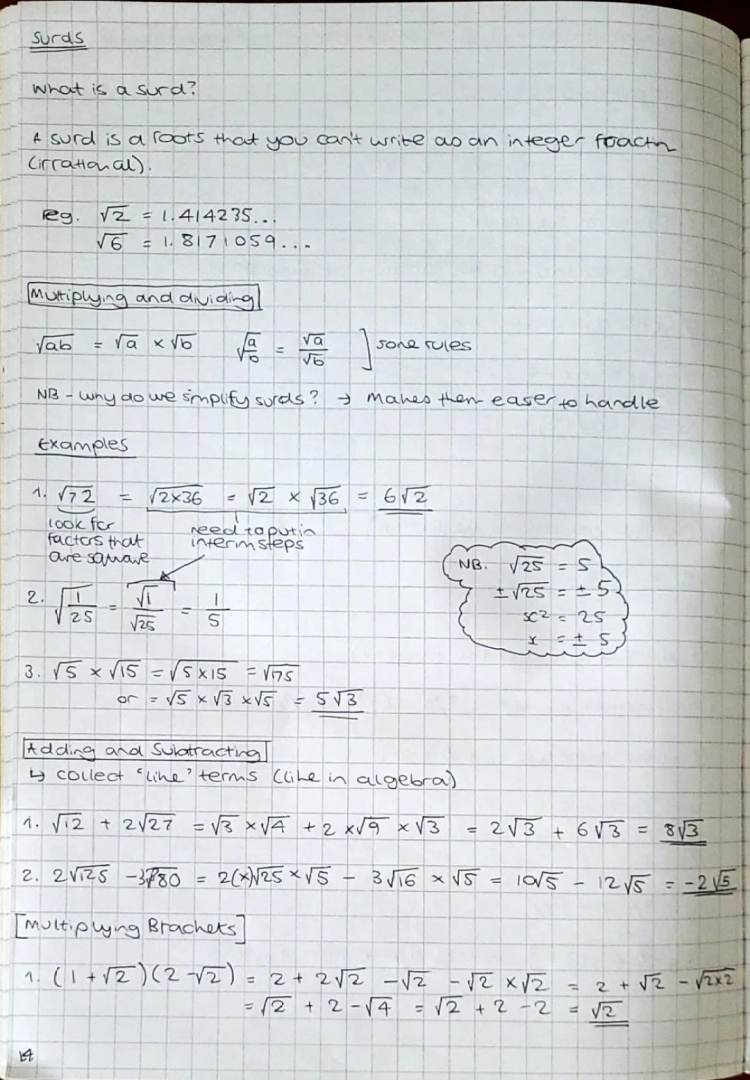 Surds
What is a surd?
A surd is a roots that you can't write as an integer fraction
(irrational).
eg. √2 = 1.414235...
√6 = 1.8171059...
Multiplying and dividing
√ab = √a × √b √(a/b) = √a/√b ] some rules
NB - Why do we simplify surds? → Makes them easer to handle
Examples
1. √72 = √2×36 = √2 × √36 = 6√2
look for need to put in
factors that interm steps
are square
NB. √25 = 5
±√25 = ±5
x² = 25
x = ±5
2. √(1/25) = √1/√25 = 1/5
3. √5 × √15 = √5×15 = √75
or = √5 × √3 × √5 = 5√3
Adding and Subtracting
↳ collect 'like' terms (like in algebra)
1. √12 + 2√27 = √3 × √4 + 2 × √9 × √3 = 2√3 + 6√3 = 8√3
2. 2√125 - 3√80 = 2(×)√25 × √5 - 3√16 × √5 = 10√5 - 12√5 = -2√5
[Multiplying Brackets]
1. (1 + √2)(2 - √2) = 2 + 2√2 - √2 - √2 × √2 = 2 + √2 - √2×2
= √2 + 2 - √4 = √2 + 2 - 2 = √2